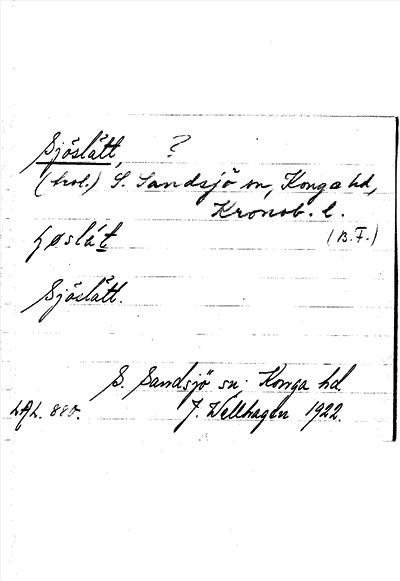 Sjöslätt, ?
(trol.) S. Sandsjö sn, Konga hd,
Kronob. l.
(B.F.)
Sjöslätt.
S. Sandsjö sn. Konga hd
LAL. 880. J. Wellhagen 1922.